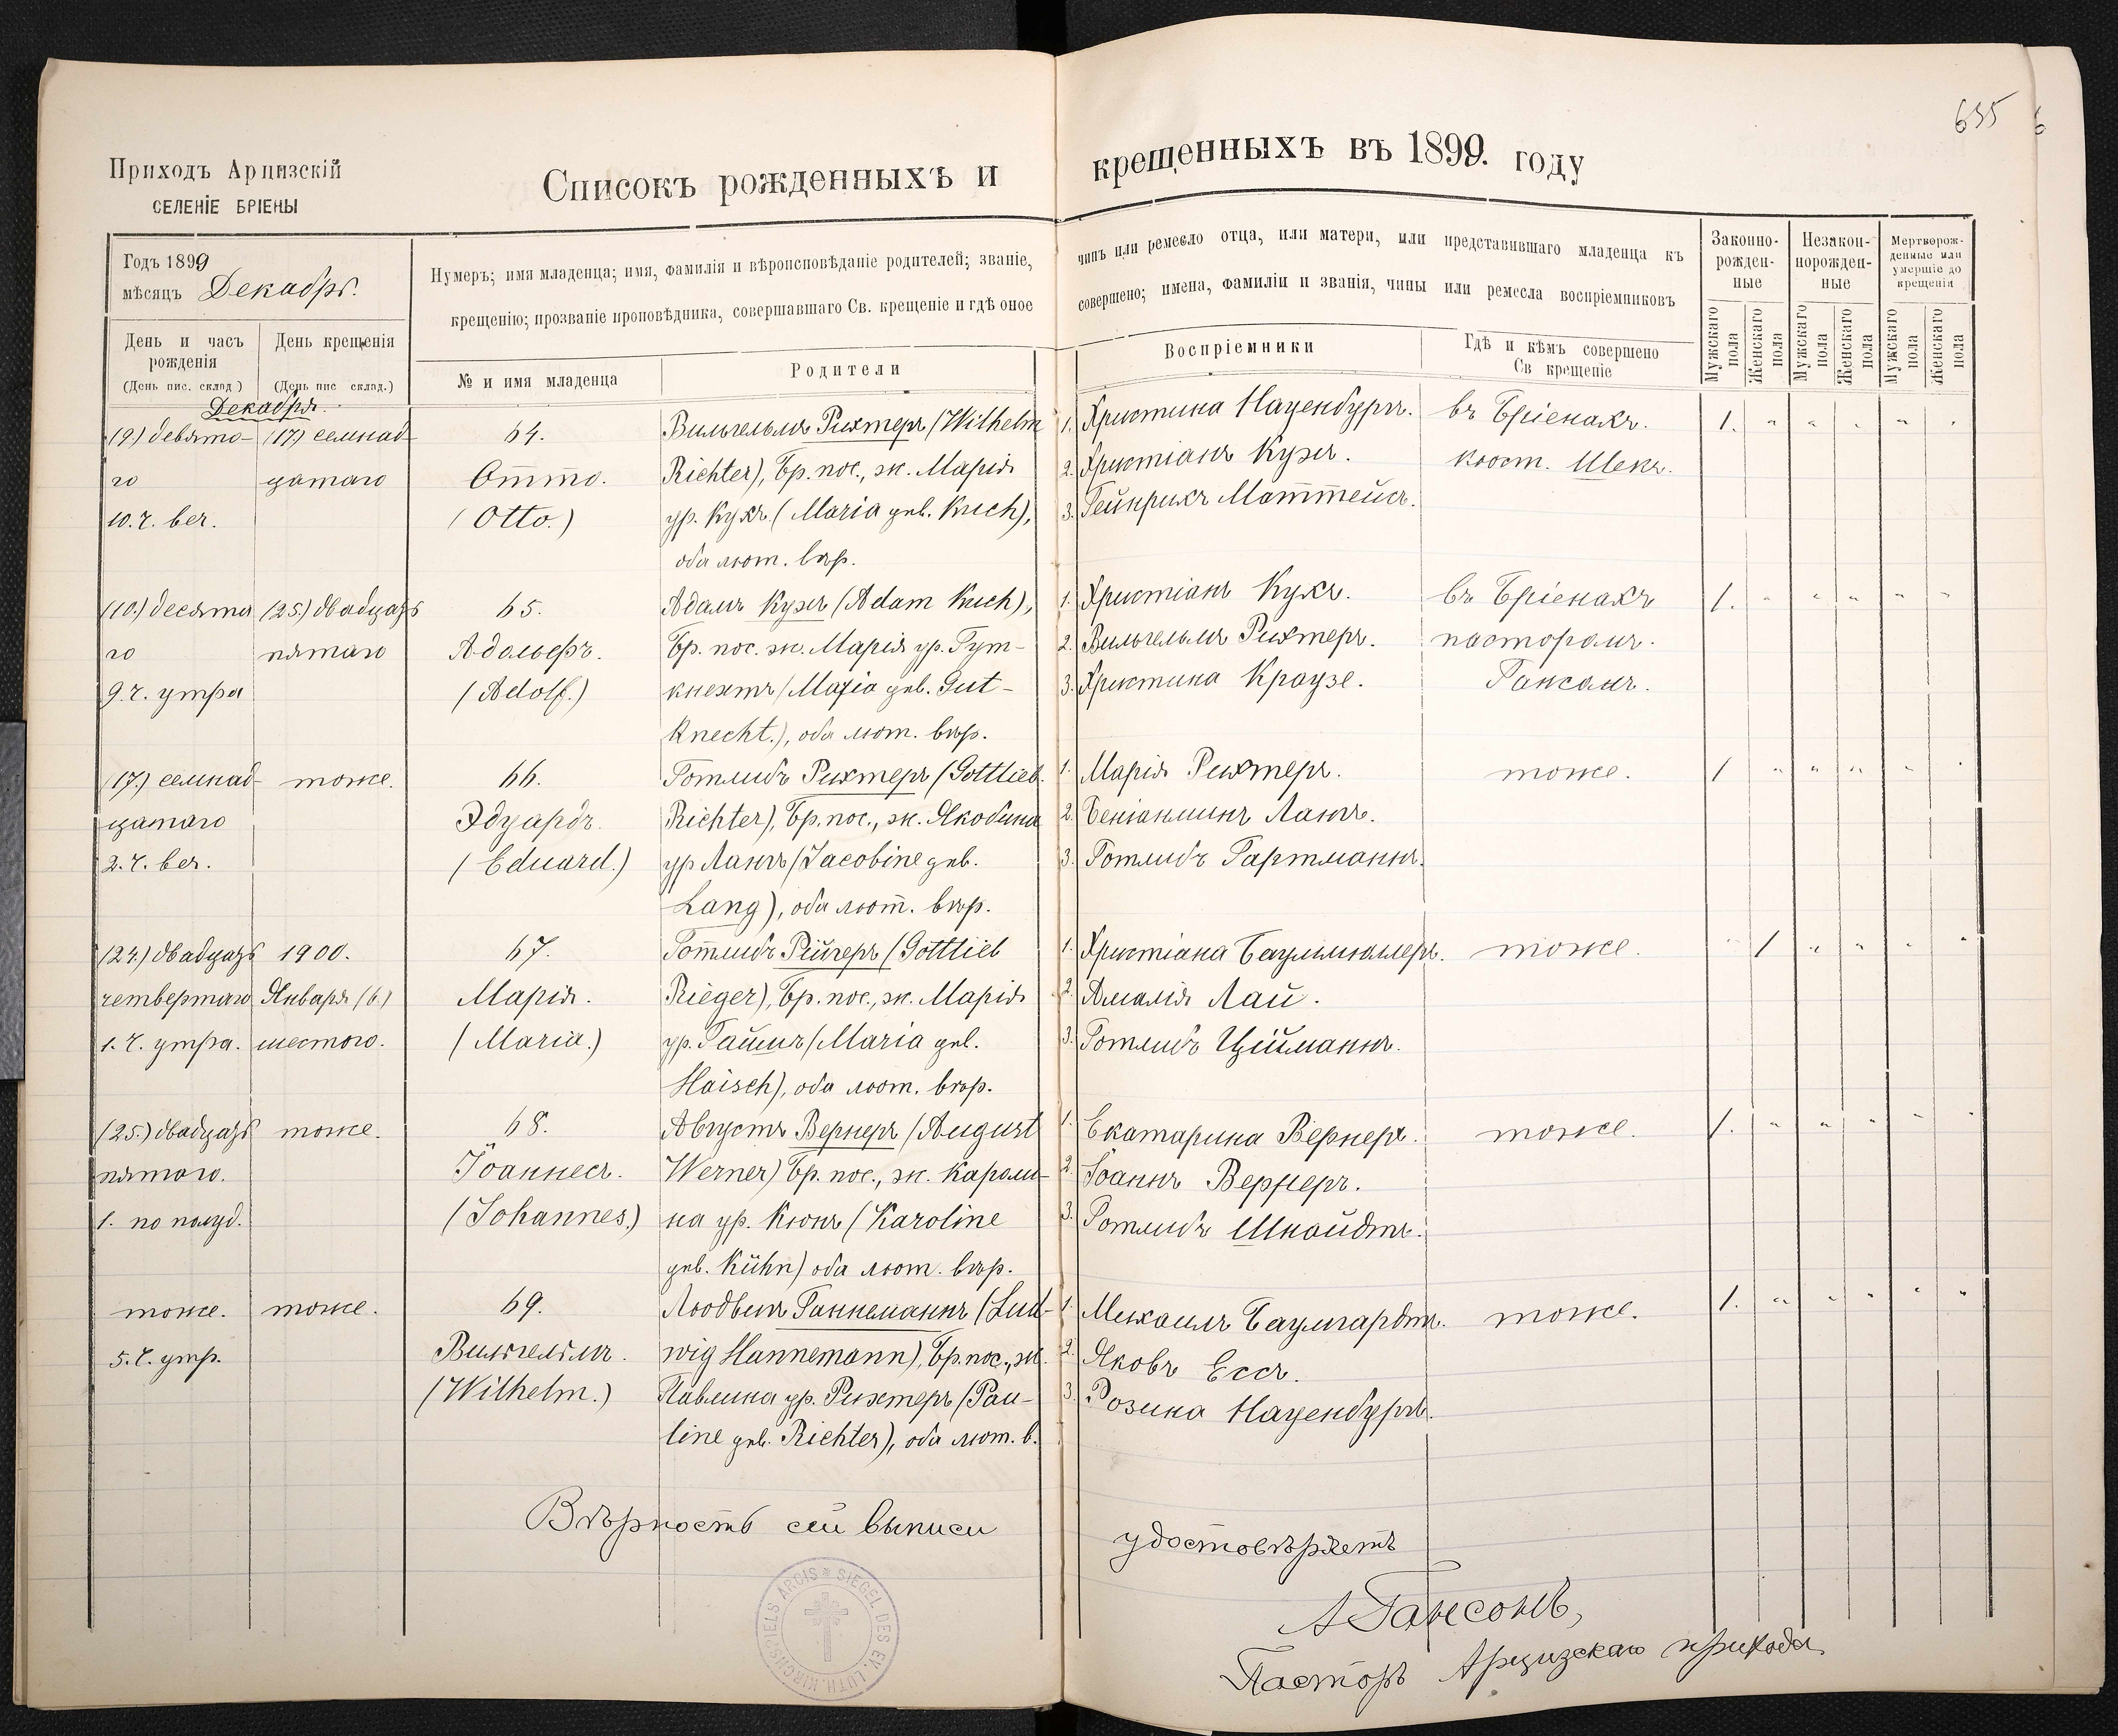 635
6
Приходъ Арцизскій
СЕЛЕНІЕ БРІЕНЫ
Списокъ рожденныхъ и крещенныхъ въ 1899. году
Годъ 1899
мѣсяцъ Декабрь.
Нумеръ; имя младенца; имя, фамилія и вѣроисповѣданіе родителей; званіе, чинъ или ремесло отца, или матери, или представившаго младенца къ
крещенію; прозваніе проповѣдника, совершавшаго Св. крещеніе и гдѣ оное совершено; имена, фамиліи и званія, чины или ремесла воспріемниковъ
Законно-
рожден-
ные
Незакон-
норожден-
ные
Мертворож-
денные или
умершіе до
крещенія
День и часъ
рожденія
(День пис. склад)
День крещенія
(День пис склад.)
№ и имя младенца
Родители
Воспріемники
Гдѣ и кѣмъ совершено
Св крещеніе
Мужскаго пола
Женскаго пола
Мужскаго пола
Женскаго пола
Мужскаго пола
Женскаго пола
Декабря.
(9) девято- (17) семнад- 64. Вильгельмъ Рихтеръ (Wilhelm 1. Христина Наценбургъ. въ Бріенахъ. 1. " " " " "
го цатаго Отто. Richter), Бр. пос., ж. Марія 2. Христіанъ Кухъ. кюст. Шекъ.
10. ч. веч. (Otto.) ур. Кухъ (Maria geb. Kuch), 3. Гейнрихъ Маттейсъ.
оба лют. вѣр.
(10.) десята (25.) двадцать 65. Адамъ Кухъ (Adam Kuch), 1. Христіанъ Кухъ. въ Бріенахъ 1. " " " " "
го пятаго Адольфъ. Бр. пос. ж. Марія ур. Гут- 2. Вильгельмъ Рихтеръ. пасторомъ.
9. ч. утра (Adolf.) кнехтъ (Maria geb. Gut- 3. Христина Краузе. Гансонъ.
knecht.), оба лют. вѣр.
(17.) семнад- тоже. 66. Готлибъ Рихтеръ (Gottlieb 1. Марія Рихтеръ. тоже. 1 " " " " "
цатаго Эдуардъ. Richter), Бр. пос., ж. Якобина 2. Беніаминъ Лангъ.
2. ч. веч. (Eduard.) ур Лангъ (Jacobine geb. 3. Готлибъ Гартманнъ.
Lang), оба лют. вѣр.
(24.) двадцать 1900. 67. Готлибъ Рийгеръ (Gottlieb 1. Христіана Баумиллеръ. тоже. " 1 " " " "
четвертаго Января (6.) Марія. Rieger), Бр. пос., ж. Марія 2. Амалія Лай.
1. ч. утра. шестого. (Maria.) ур. Гайшъ (Maria geb. 3. Готлибъ Цийманнъ.
Haisch), оба лют. вѣр.
(25.) двадцать тоже. 68. Августъ Вернеръ (August 1. Екатарина Вернеръ. тоже. 1. " " " " "
пятаго. Іоаннесъ. Werner) Бр. пос., ж. Кароли- 2. Іоаннъ Вернеръ.
1. по полуд. (Johannes.) на ур. Кюнъ (Karoline 3. Готлибъ Шнайдтъ.
geb. Kühn) оба лют. вѣр.
тоже. тоже. 69. Людвигъ Ганнеманнъ (Lud- 1. Михаилъ Баумгардтъ. тоже. 1. " " " " "
5. ч. утр. Вильгельмъ. wig Hannemann), Бр. пос., ж. 2. Яковъ Ессъ.
(Wilhelm.) Павлина ур. Рихтеръ (Pau- 3. Розина Наценбургъ.
line geb. Richter), оба лют. в.
Вѣрность сей выписи удостовѣряетъ
А Гансонъ,
Пасторъ Арцизскаго прихода
SIEGEL DES EV. LUTH. KIRCHSPIELS ARCIS